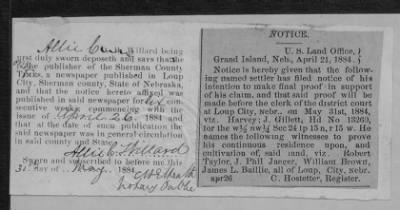 Allie E. Willard being
first duly sworn deposeth and says that he
is the publisher of the Sherman County
Times, a newspaper published in Loup
City, Sherman county, State of Nebraska,
and that the notice hereto affixed was
published in said newspaper for six con-
secutive weeks, commencing with the
issue of April 26 1884 and
that at the date of such publication the
said newspaper was in general circulation
in said county and State.
Allie E. Willard
Sworn and subscribed to before me this
31 day of May 1884
Notary Public
NOTICE.
U. S. Land Office,
Grand Island, Neb., April 21, 1884.
Notice is hereby given that the follow-
ing named settler has filed notice of his
intention to make final proof in support
of his claim, and that said proof will be
made before the clerk of the district court
at Loup City, Nebr., on May 31st, 1884,
viz.: Harvey J. Gillett, Hd No 13269,
for the w½ sw¼ Sec 24 tp 15 n, r 15 w. He
names the following witnesses to prove
his continuous residence upon, and
cultivation of, said land, viz. Robert
Taylor, J. Phil Jaeger, William Brown,
James L. Baillie, all of Loup, City, Nebr.
apr26 C. Hostetter, Register.